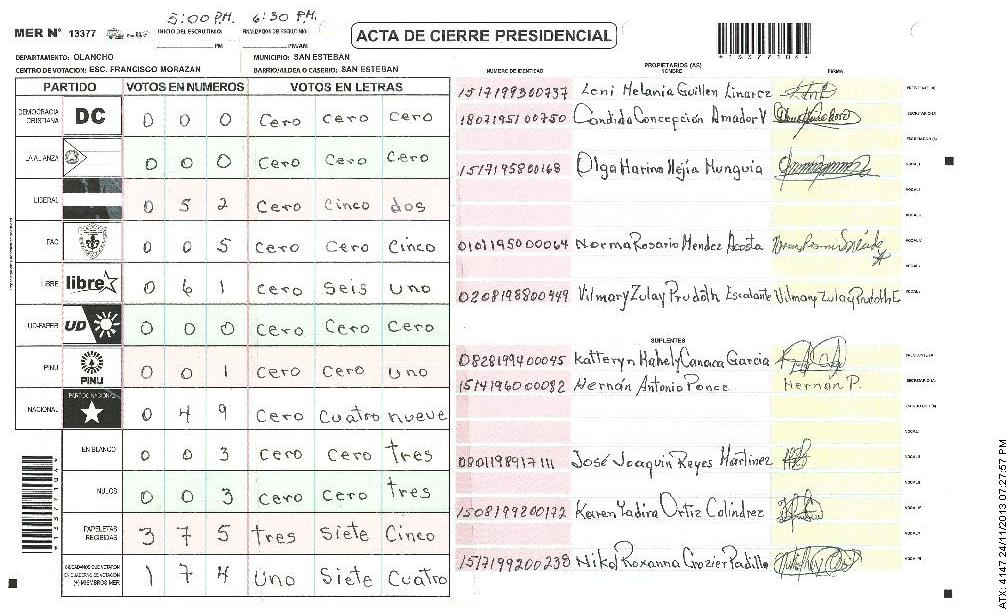 5:00 P.M. 6:30 P.M.
MER Nº 13377 INICIO DEL ESCRUTINIO FINALIZACION DEL ESCRUTINIO
PM PM/AM
ACTA DE CIERRE PRESIDENCIAL
*13377104*
DEPARTAMENTO: OLANCHO MUNICIPIO: SAN ESTEBAN
CENTRO DE VOTACION: ESC. FRANCISCO MORAZAN BARRIO/ALDEA O CASERIO: SAN ESTEBAN
PARTIDO VOTOS EN NUMEROS VOTOS EN LETRAS
DEMOCRACIA CRISTIANA DC 0 0 0 Cero Cero Cero
LA ALIANZA 0 0 0 Cero Cero Cero
LIBERAL 0 5 2 Cero Cinco dos
PAC 0 0 5 Cero Cero Cinco
LIBRE libre 0 6 1 Cero Seis uno
UD-FAPER UD 0 0 0 Cero Cero Cero
PINU PINU 0 0 1 Cero Cero uno
NACIONAL PARTIDO NACIONAL 0 4 9 Cero Cuatro nueve
EN BLANCO 0 0 3 Cero Cero tres
NULOS 0 0 3 Cero Cero tres
PAPELETAS RECIBIDAS 3 7 5 tres Siete Cinco
CIUDADANOS QUE VOTARON EN CUADERNO DE VOTACION (+) MIEMBROS MER 1 7 4 uno Siete Cuatro
PROPIETARIOS (AS)
NUMERO DE IDENTIDAD NOMBRE FIRMA
1517199300737 Leni Melania Guillen Linarez PRESIDENTE (A)
1807195100750 Candida Concepción Amador V SECRETARIO (A)
ESCRUTADOR (A)
1517195800168 Olga Marina Mejía Munguia VOCAL I
0101195000064 Norma Rosario Mendez Acosta
0208198800449 Vilmary Zulay Prudoth Escalante Vilmary Zulay Prudoth E
SUPLENTES
0828199400045 Katteryn Mahely Canaca Garcia PRESIDENTE (A)
1514196000082 Hernán Antonio Ponce Hernan P. SECRETARIO (A)
ESCRUTADOR (A)
0801198917111 José Joaquin Reyes Martinez
1508199200172 Karen Yadira Ortiz Colindrez
1517199200238 Niko Roxanna Crozier Padilla
ATX: 4147 24/11/2013 07:27:57 PM